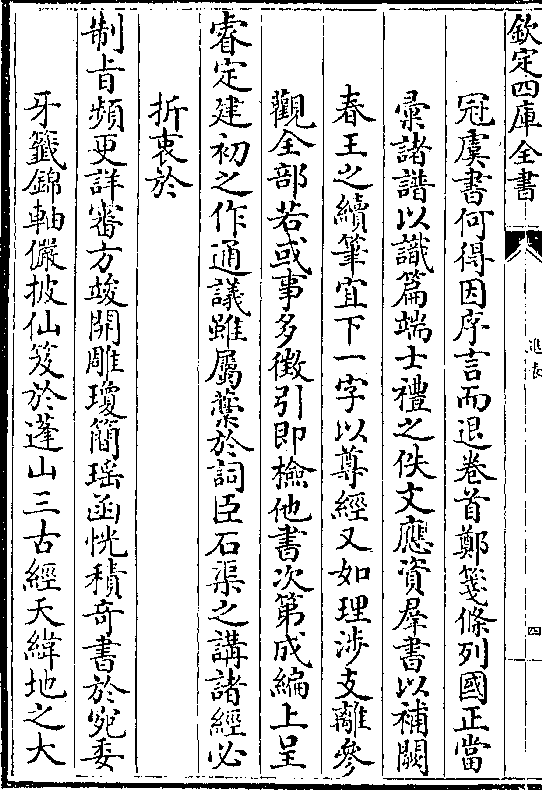 欽定四庫全書
進表
四
冠虞書何得因序言而退卷首鄭箋條列國正當
彚諸譜以識篇端士禮之佚文應資羣書以補闕
春王之續筆宜下一字以尊經又如理涉支離參
觀全部若或事多徴引即檢他書次第成編上呈
睿定建初之作通議雖屬藁於詞臣石渠之講諸經必
折衷於
制旨頻更詳審方竣開雕瓊簡瑶函恍積奇書於宛委
牙籤錦軸儼披仙笈於蓬山三古經天緯地之大